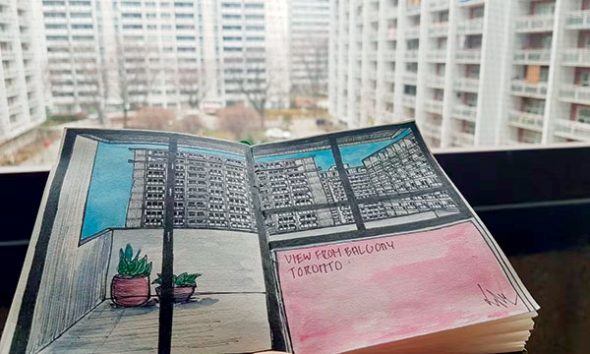 VIEW FROM BALCONY
TORONTO